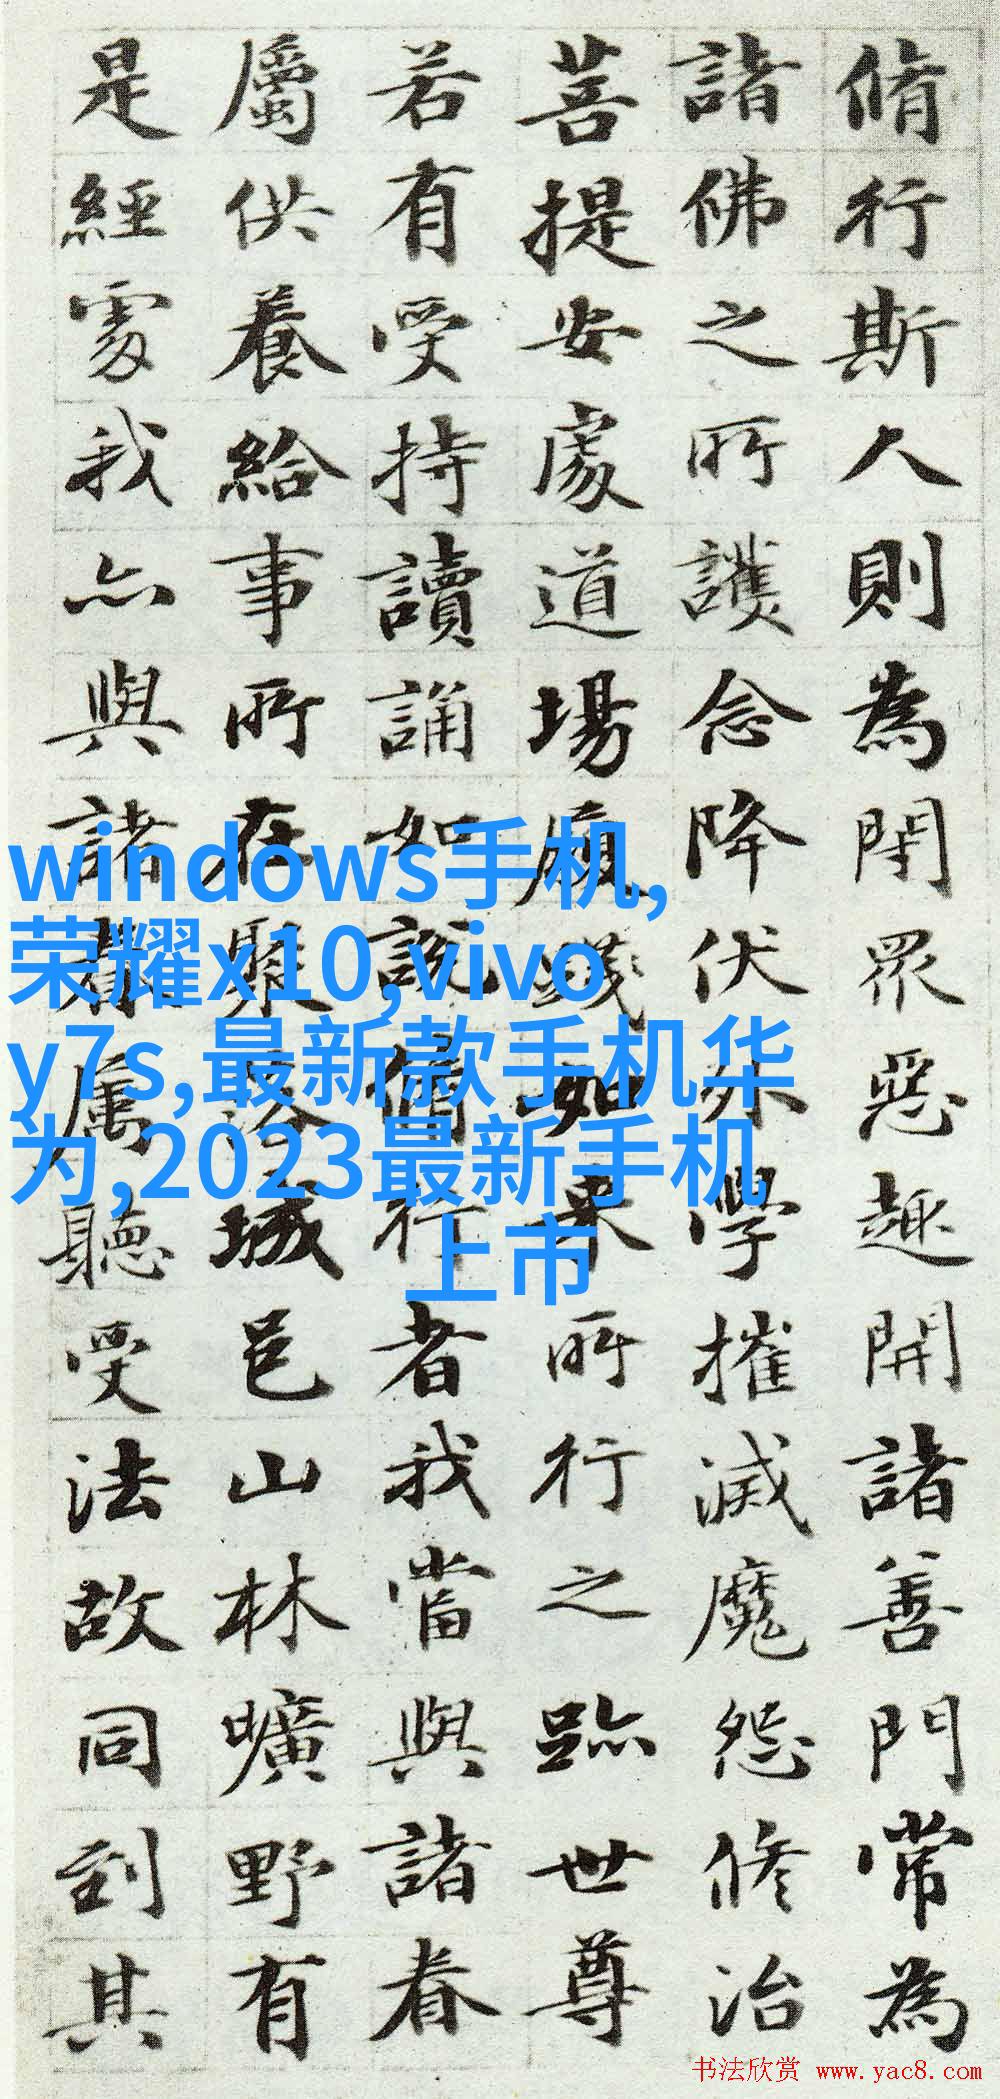 脩行斯人則為閇眾惡趣開諸善門常為
諸佛之所護念降伏外學摧滅魔怨修治
菩提安處道場履踐如來所行之跡世尊
若有受持讀誦如說脩行者我當與諸眷
屬供養給事所在聚落城邑山林曠野有
是經處我亦與諸眷属聽受法故同到其
windows手机,
荣耀x10,vivo
y7s,最新款手机华
为,2023最新手机
上市
书法欣赏 www.yac8.com